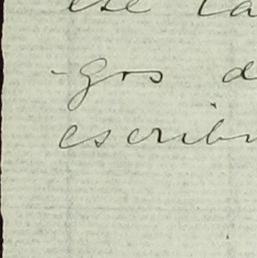 ese la
-gos d
escribi